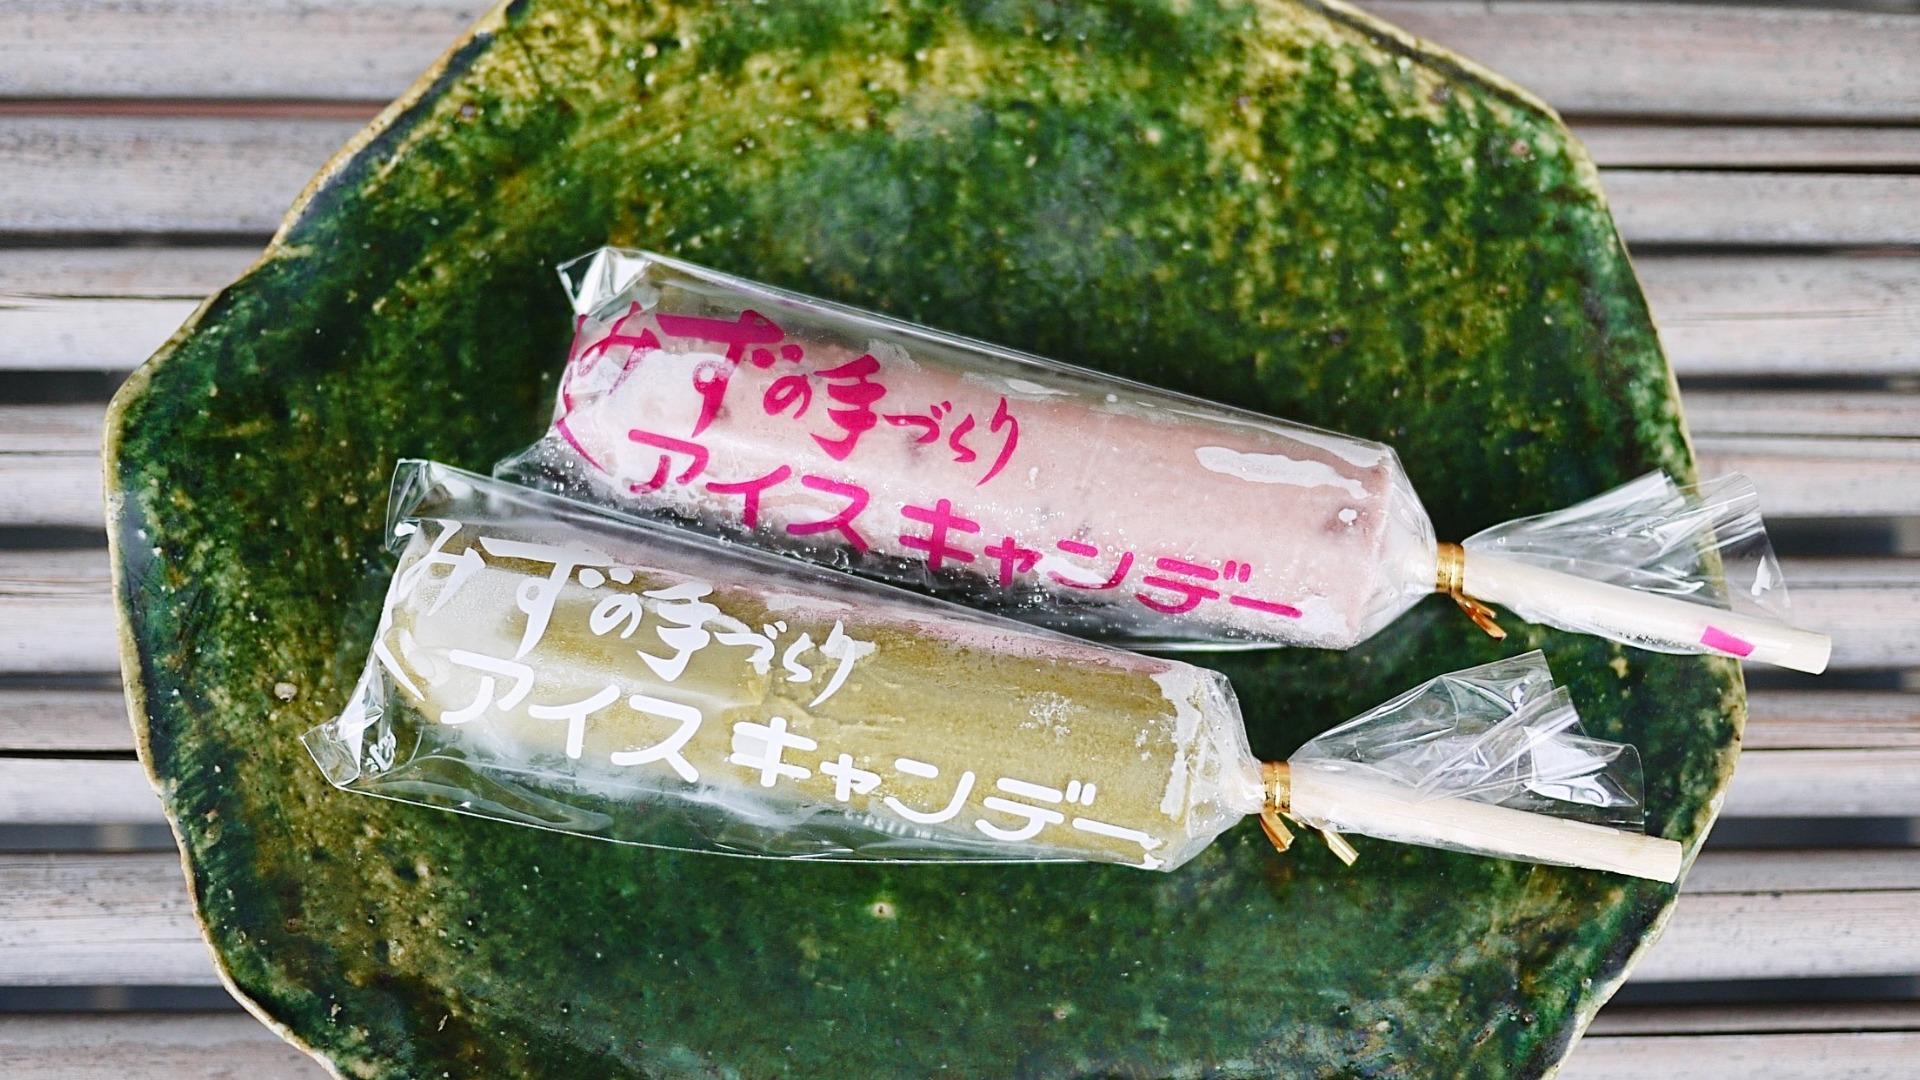 みずの手づくり
アイスキャンデー
みずの手づくり
アイスキャンデー